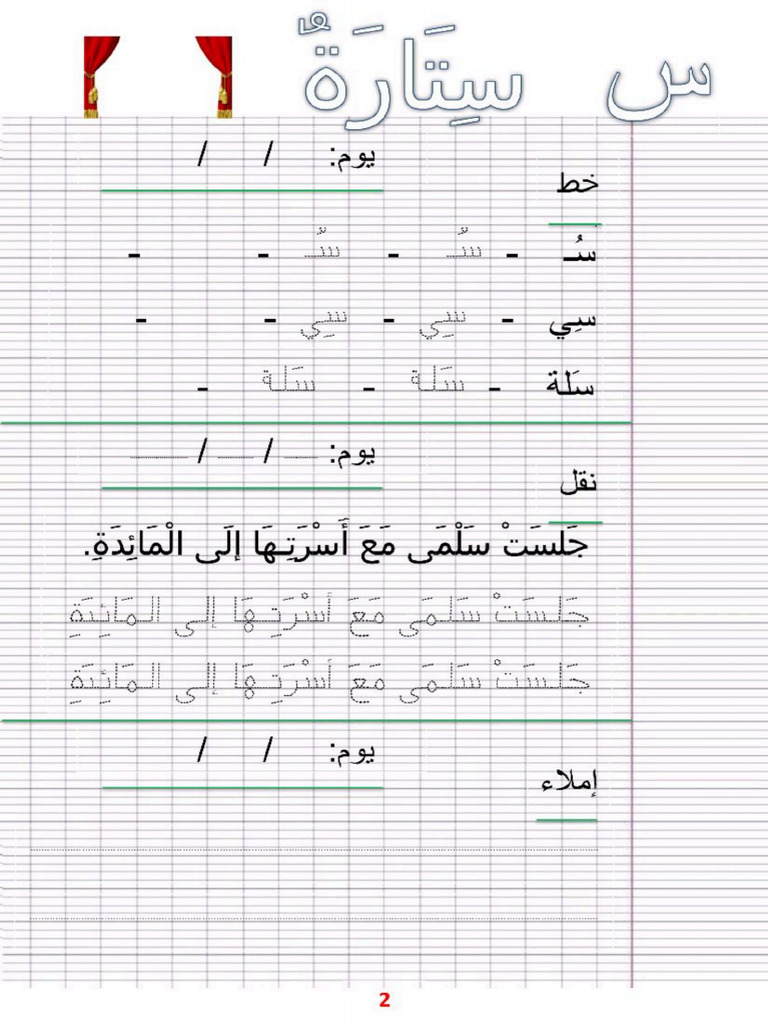 س سِتَارَةٌ
يوم: / /
خط
سُـ - سُـ - سُـ - -
سِي - سِي - سِي - -
سَلة - سَلة - سَلة -
يوم: / /
نقل
جَلسَتْ سَلْمَى مَعَ أَسْرَتِـهَا إلَى الْمَائِدَةِ.
جَلسَتْ سَلمَى مَعَ أَسْرَتِـهَا إلى المَائِدَةِ
جَلسَتْ سَلمَى مَعَ أَسْرَتِـهَا إلى المَائِدَةِ
يوم: / /
إملاء
2